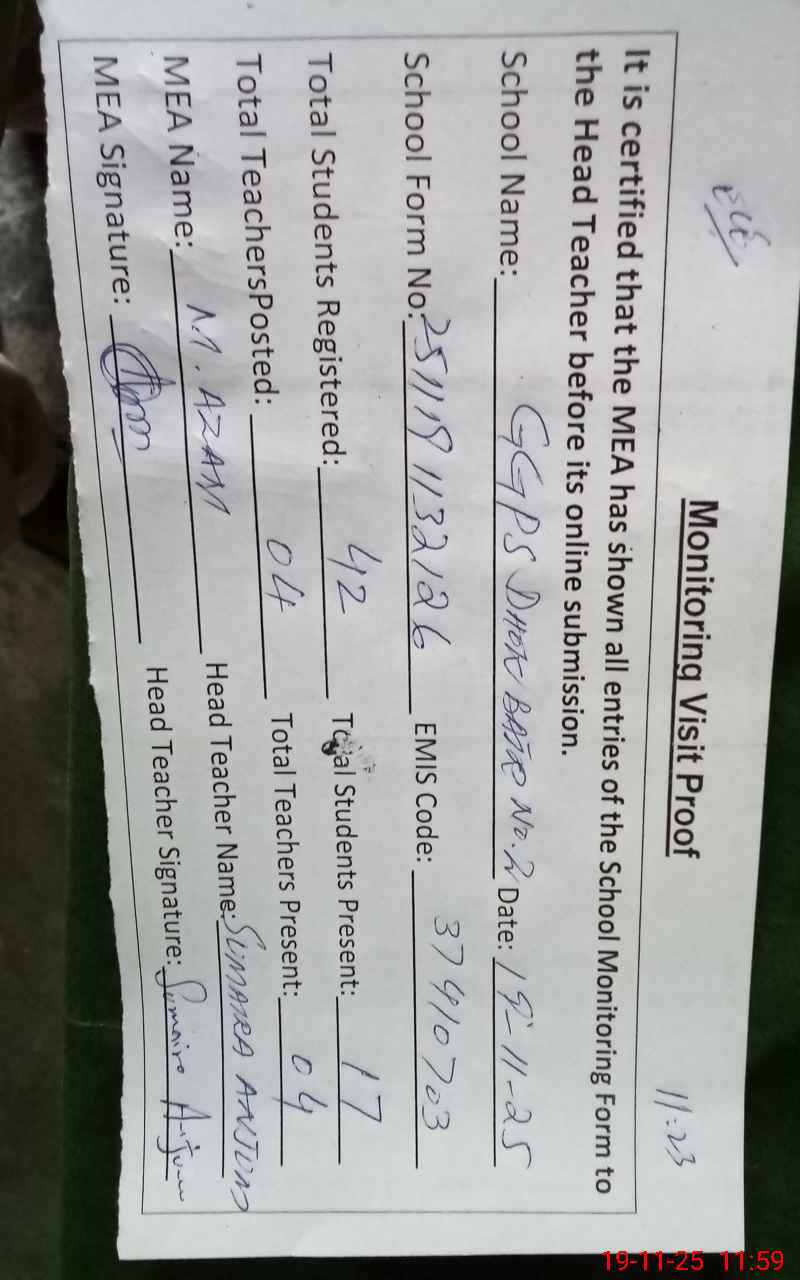 11:23
Monitoring Visit Proof
It is certified that the MEA has shown all entries of the School Monitoring Form to
the Head Teacher before its online submission.
School Name: GGPS DHOK BAJR No.2 Date: 19-11-25
School Form No: 251119 1132126 EMIS Code: 37410703
Total Students Registered: 42 Total Students Present: 17
Total TeachersPosted: 04 Total Teachers Present: 04
MEA Name: M. AZAM Head Teacher Name: SUMAIRA ANJUM
MEA Signature: Head Teacher Signature: Sumaira Anjum
19-11-25 11:59